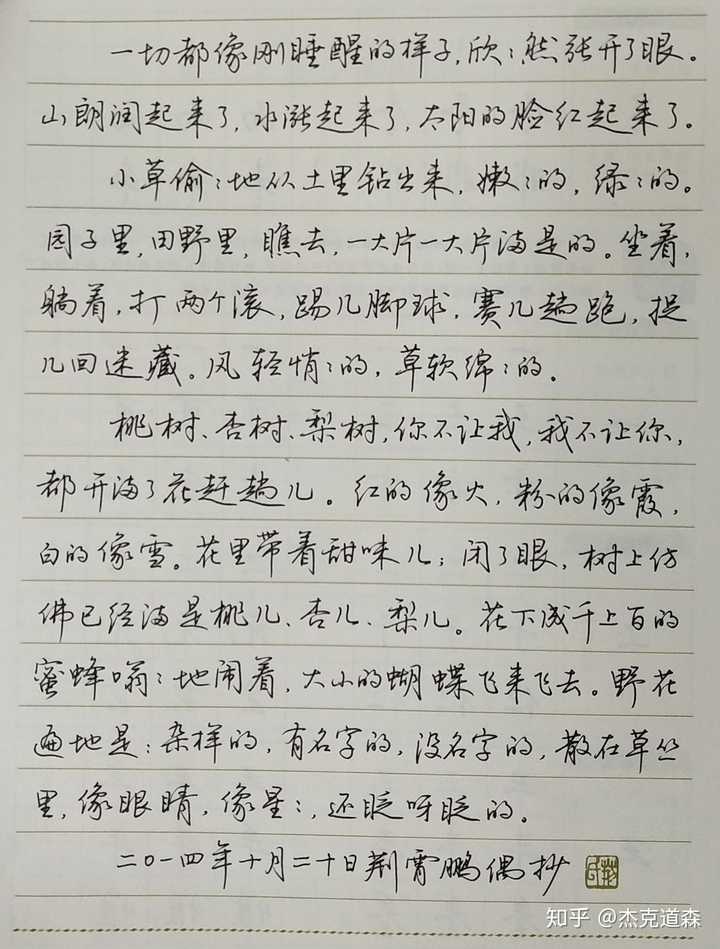 一切都像刚睡醒的样子,欣:然张开了眼。
山朗润起来了,水涨起来了,太阳的脸红起来了。
小草偷:地从土里钻出来,嫩:的,绿:的。
园子里,田野里,瞧去,一大片一大片满是的。坐着,
躺着,打两个滚,踢几脚球,赛几趟跑,捉
几回迷藏。风轻悄:的,草软绵:的。
桃树、杏树、梨树,你不让我,我不让你,
都开满了花赶趟儿。红的像火,粉的像霞,
白的像雪。花里带着甜味儿;闭了眼,树上仿
佛已经满是桃儿、杏儿、梨儿。花下成千上百的
蜜蜂嗡:地闹着,大小的蝴蝶飞来飞去。野花
遍地是:杂样的,有名字的,没名字的,散在草丛
里,像眼睛,像星:,还眨呀眨的。
二〇一四年十月二十日荆霄鹏偶抄
知乎 @杰克道森